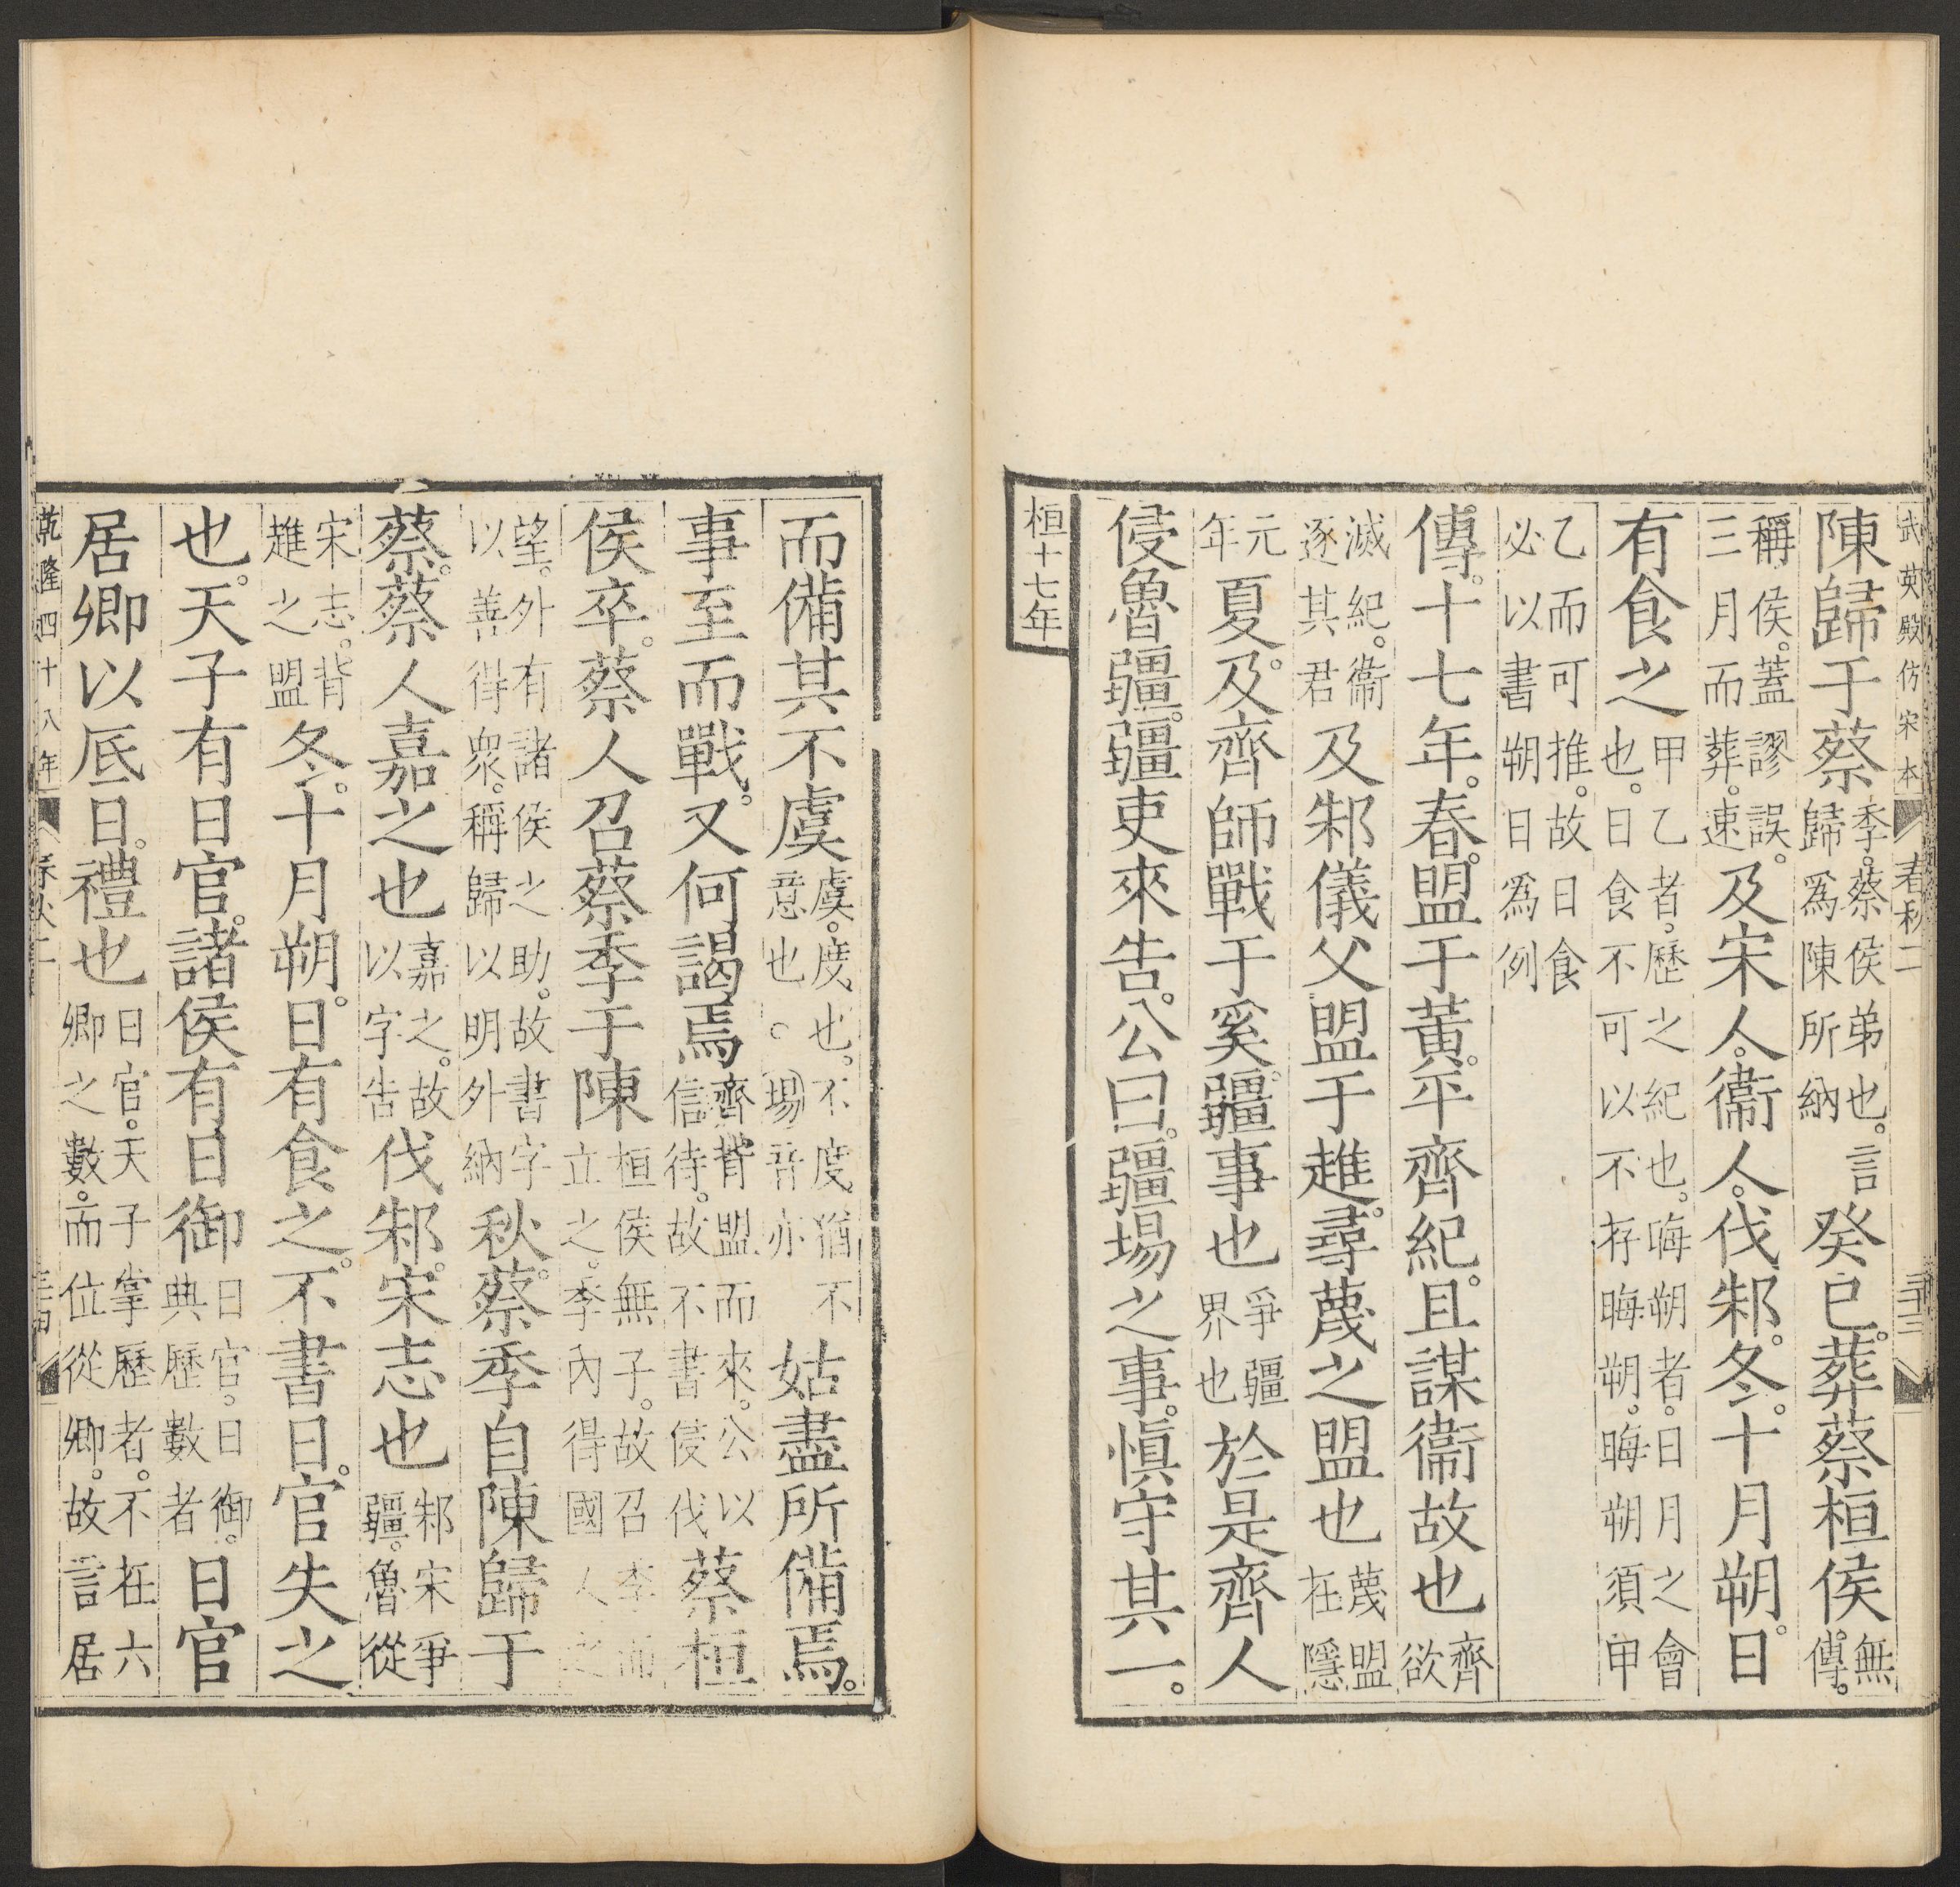 武英殿仿宋本 春秋二 三十三
陳歸于蔡季。蔡侯弟也。言歸爲陳所納癸巳。葬蔡桓侯無傳。
稱侯。蓋謬誤。三月而葬。速及宋人。衞人。伐邾。冬。十月朔。日
有食之甲乙者。歷之紀也。晦朔者。日月之會也。日食不可以不存晦朔。晦朔須甲
乙而可推。故日食必以書朔日爲例
傳。十七年。春。盟于黃。平齊紀。且謀衞故也齊欲
滅紀。衞逐其君及邾儀父盟于趡。尋蔑之盟也蔑盟在隱
元年夏。及齊師戰于奚。疆事也爭疆界也於是齊人
侵魯疆。疆吏來告。公曰。疆埸之事。愼守其一。
桓十七年
而備其不虞虞。度也。不度猶不意也。○埸音亦姑盡所備焉。
事至而戰。又何謁焉齊背盟而來。公以信待。故不書侵伐蔡桓
侯卒。蔡人召蔡季于陳桓侯無子。故召季而立之。季內得國人之
望。外有諸侯之助。故書字以善得衆。稱歸以明外納秋。蔡季自陳歸于
蔡。蔡人嘉之也嘉之。故以字告伐邾。宋志也邾宋爭疆。魯從
宋志。背趡之盟冬。十月朔。日有食之。不書日。官失之
也。天子有日官。諸侯有日御日官。日御。典歷數者日官
居卿以底日。禮也日官。天子掌歷者。不在六卿之數。而位從卿。故言居
乾隆四十八年 春秋二 三十四